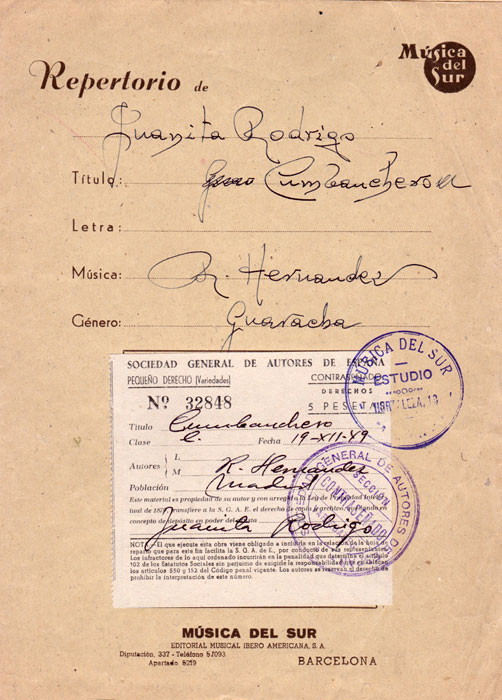 Música del Sur
Repertorio de
Juanita Rodrigo
Título: Cumbanchero
Letra:
Música: R. Hernandez
Género: Guaracha
SOCIEDAD GENERAL DE AUTORES DE ESPAÑA
PEQUEÑO DERECHO (Variedades)
CONTRASEÑADO
DERECHOS
Nº 32848
5 PESETAS
Título Cumbanchero
Clase C. Fecha 19-XII-49
Autores L
M R. Hernández
Población Madrid
Este material es propiedad de su autor y con arreglo a la Ley de Propiedad Intelec-
tual de transfiere a la S. G. A. E. el derecho de copia y archivo, quedando en
concepto de depósito en poder del
Juanita Rodrigo
NOTA.—El que ejecute esta obra viene obligado a incluirla en la relación de la hoja de
reparto que para este fin facilita la S. G. A. E., por conducto de sus representantes.
Los infractores de lo aquí ordenado incurrirán en la penalidad que determina el artículo
102 de los Estatutos Sociales sin perjuicio de exigirle la responsabilidad
los artículos 550 y 552 del Código penal vigente. Los autores se reservan el derecho de
prohibir la interpretación de este número.
MÚSICA DEL SUR
ESTUDIO
HORTALEZA, 18
SOCIEDAD GENERAL DE AUTORES DE
SECCION
MÚSICA DEL SUR
EDITORIAL MUSICAL IBERO AMERICANA, S. A.
Diputación, 337 - Teléfono 57093
Apartado 5219
BARCELONA